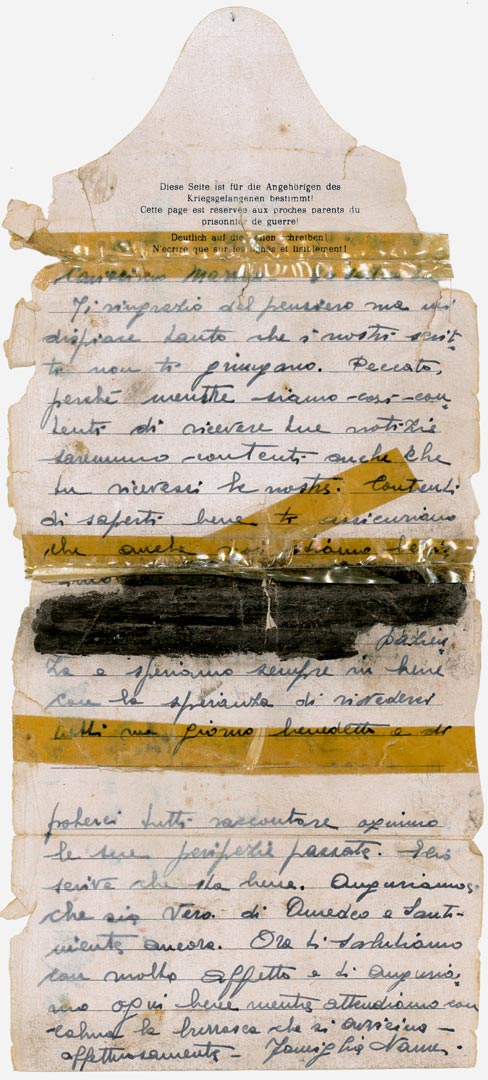 Diese Seite ist für die Angehörigen des
Kriegsgefangenen bestimmt!
Cette page est réservée aux proches parents du
prisonnier de guerre!
Deutlich auf die Zeilen schreiben!
N'écrire que sur les lignes et lisiblement!
Carissimo
Ti ringrazio del pensiero ma mi
dispiace tanto che i nostri scrit-
ti non ti giungano. Peccato,
perché mentre siamo così con-
tenti di ricevere tue notizie
saremmo contenti anche che
tu ricevessi le nostre. Contenti
di saperti bene ti assicuriamo
che anche noi stiamo
pazien
za e speriamo sempre in bene
con la speranza di rivederci
tutti un giorno benedetto e di
poterci tutti raccontare ognuno
le sue peripezie passate.
scrive che sta bene. Auguriamoci
che sia vero. di Amedeo e Santi-
niente ancora. Ora ti salutiamo
con molto affetto e ti auguria
mo ogni bene mentre attendiamo con
calma la burrasca che si avvicina -
affettuosamente - Famiglia